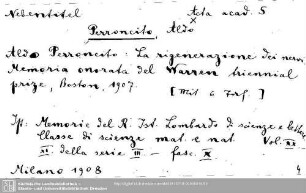 Nebentitel Acta acad. S
x
Perroncito, Aldo
Aldo Perroncito: La rigenerazione dei nervi
Memoria onorata del Warren triennial
prize, Boston, 1907.
[mit 6 Taf.]
In: Memorie del R. Ist. Lombardo di scienze e lettere
Classe di scienze mat. e nat. Vol. XX
XI della serie III fasc. X
Milano 1908